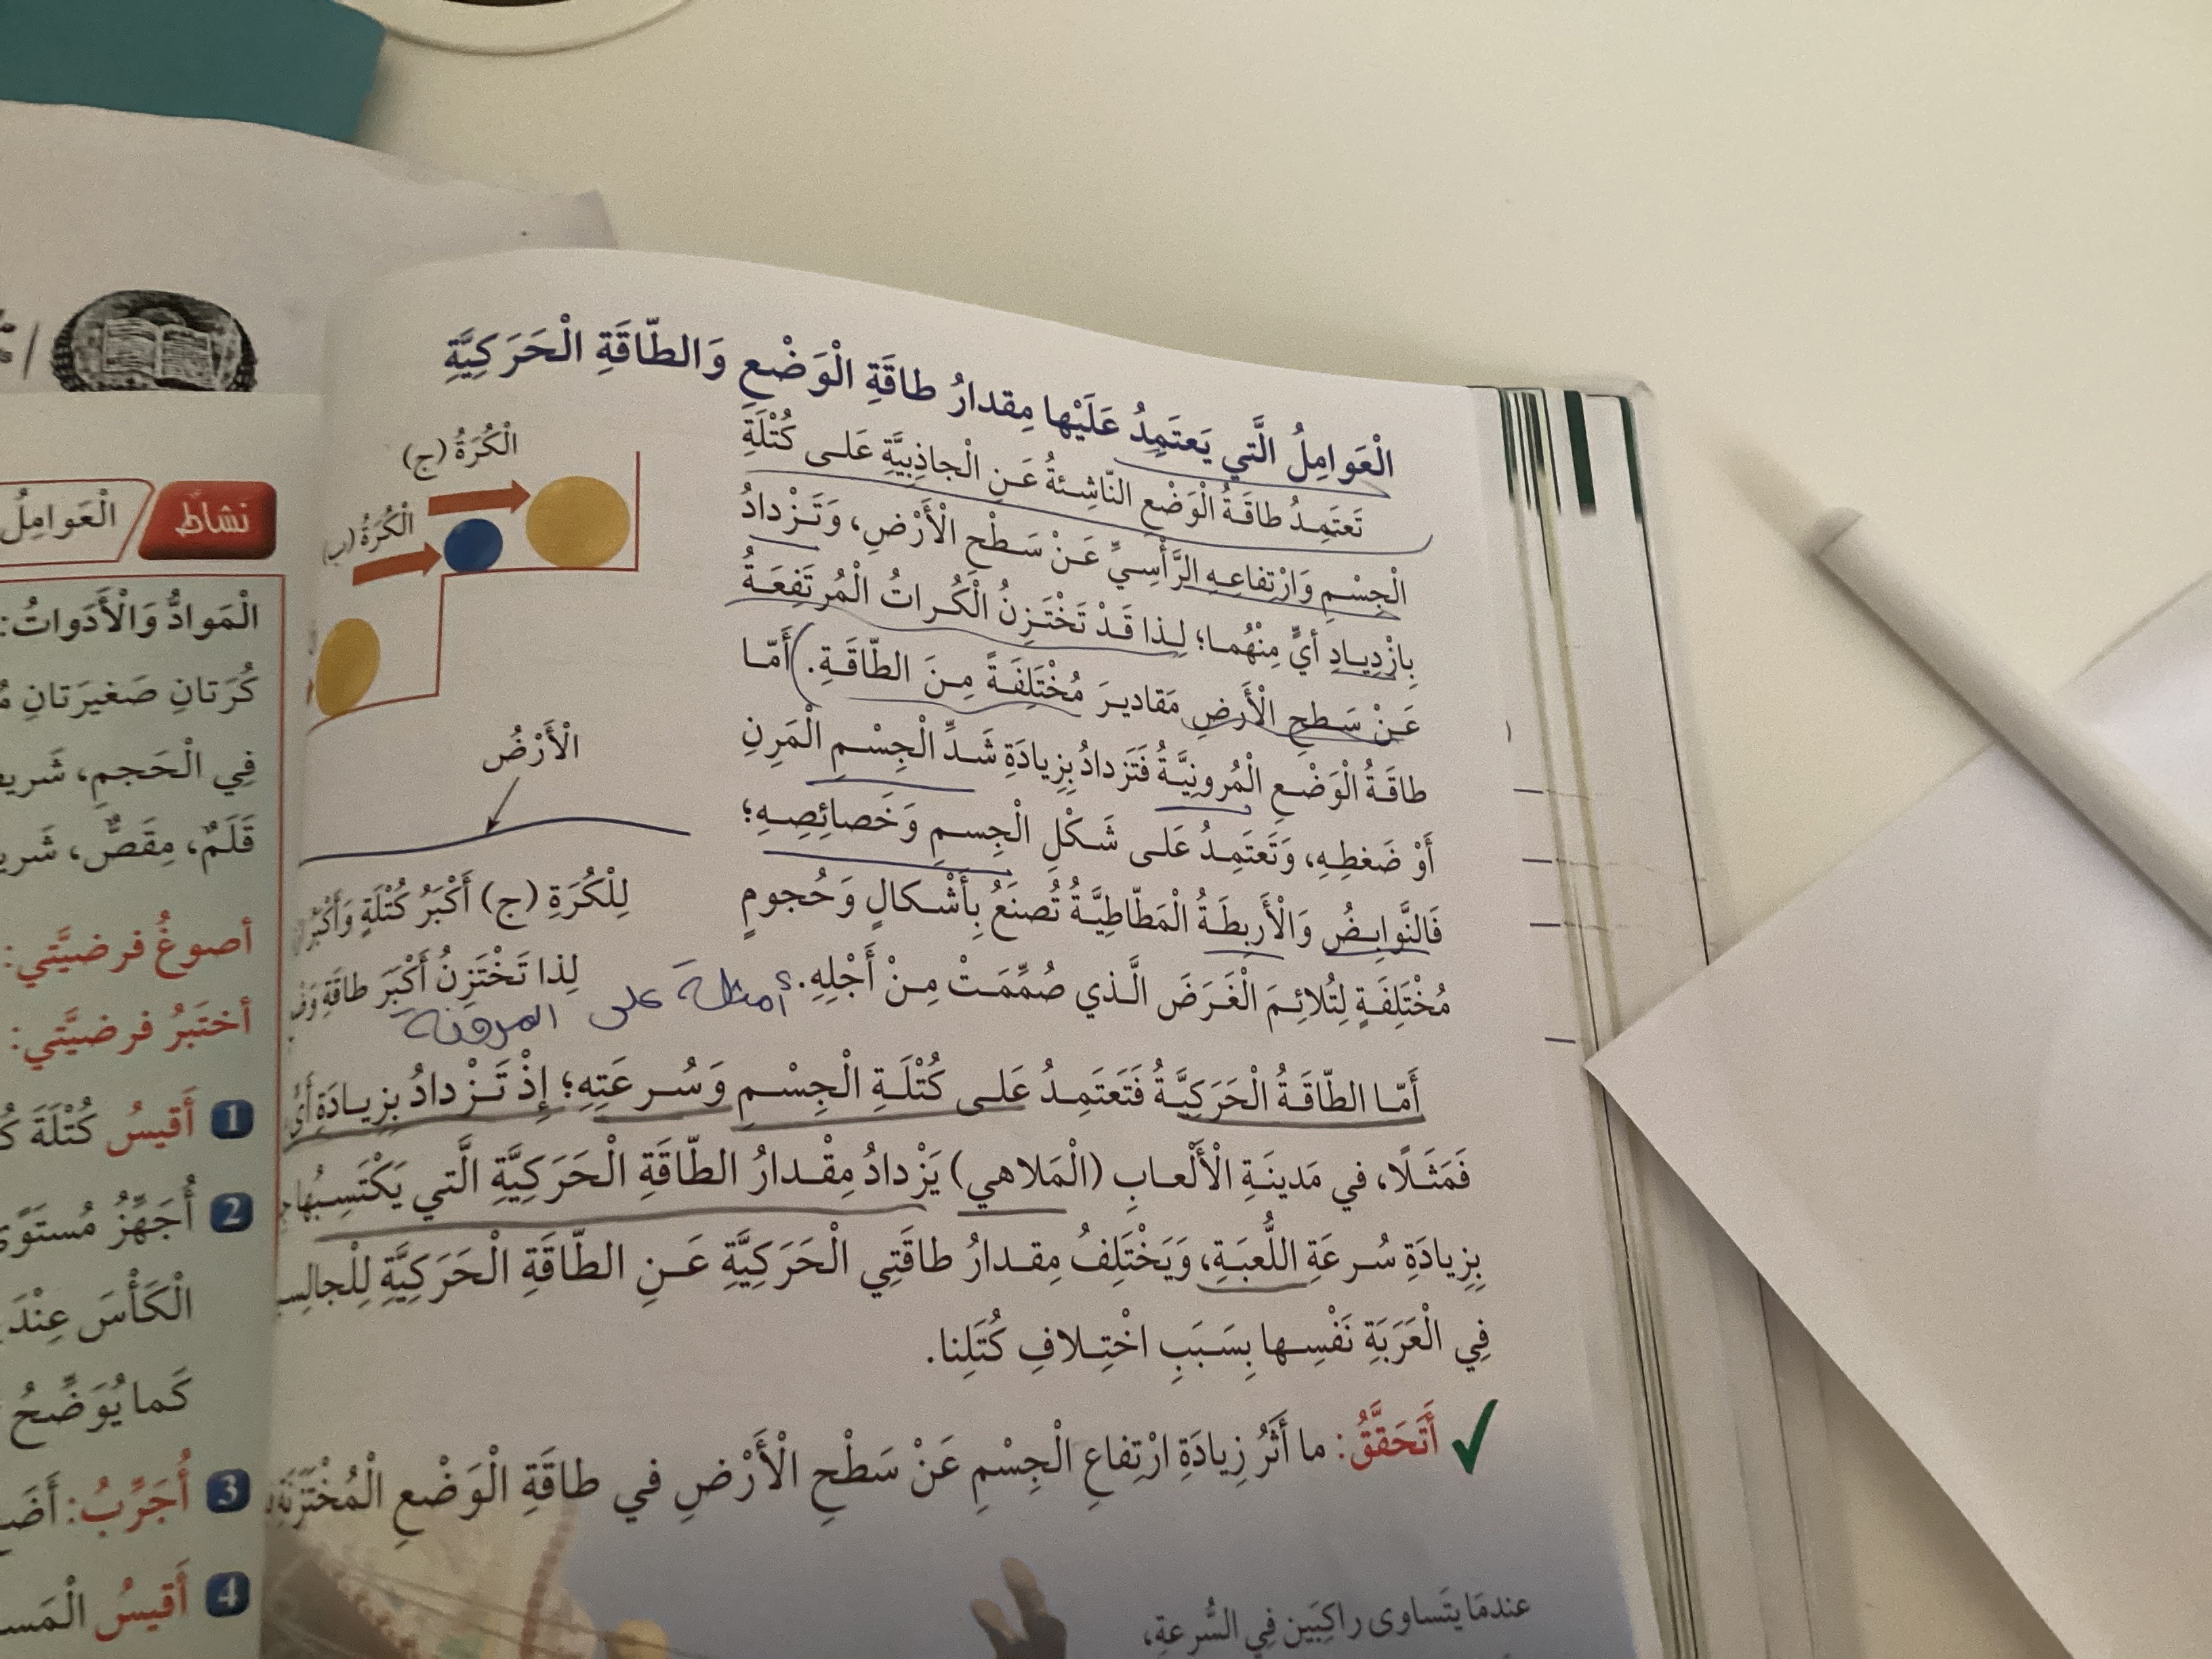 الْعَوامِلُ الَّتي يَعتَمِدُ عَلَيْها مِقدارُ طاقَةِ الْوَضْعِ وَالطّاقَةِ الْحَرَكِيَّةِ
تَعتَمِدُ طاقَةُ الْوَضْعِ النّاشِئةُ عَنِ الْجاذِبِيَّةِ عَلى كُتْلَةِ
الْجِسْمِ وَارْتِفاعِهِ الرَّأْسِيِّ عَنْ سَطْحِ الْأَرْضِ، وَتَزْدادُ
بِازْدِيادِ أَيٍّ مِنْهُما؛ لِذا قَدْ تَخْتَزِنُ الْكُراتُ الْمُرتَفِعَةُ
عَنْ سَطحِ الْأَرضِ مَقاديرَ مُخْتَلِفَةً مِنَ الطّاقَةِ. أَمّا
طاقَةُ الْوَضْعِ الْمُرونِيَّةُ فَتَزدادُ بِزِيادَةِ شَدِّ الْجِسْمِ الْمَرِنِ
أَوْ ضَغطِهِ، وَتَعتَمِدُ عَلى شَكْلِ الْجِسمِ وَخَصائِصِهِ؛
فَالنَّوابِضُ وَالْأَربِطَةُ الْمَطّاطِيَّةُ تُصنَعُ بِأَشْكالٍ وَحُجومٍ
مُخْتَلِفَةٍ لِتُلائِمَ الْغَرَضَ الَّذي صُمِّمَتْ مِنْ أَجْلِهِ.
أمثلة على المرونة
الْكُرَةُ (ج)
الْكُرَةُ (ب)
الْأَرْضُ
لِلْكُرَةِ (ج) أَكْبَرُ كُتْلَةٍ وَأَكْبَرُ
لِذا تَخْتَزِنُ أَكْبَرَ طاقَةِ
أَمّا الطّاقَةُ الْحَرَكِيَّةُ فَتَعتَمِدُ عَلى كُتْلَةِ الْجِسْمِ وَسُرعَتِهِ؛ إِذْ تَزْدادُ بِزِيادَةِ
فَمَثَلًا، في مَدينَةِ الْأَلْعابِ (الْمَلاهي) يَزْدادُ مِقْدارُ الطّاقَةِ الْحَرَكِيَّةِ الَّتي يَكْتَسِبُها
بِزِيادَةِ سُرعَةِ اللُّعبَةِ، وَيَخْتَلِفُ مِقدارُ طاقَتِي الْحَرَكِيَّةِ عَنِ الطّاقَةِ الْحَرَكِيَّةِ
فِي الْعَرَبَةِ نَفْسِها بِسَبَبِ اخْتِلافِ كُتَلِنا.
أَتَحَقَّقُ: ما أَثَرُ زِيادَةِ ارْتِفاعِ الْجِسْمِ عَنْ سَطْحِ الْأَرْضِ في طاقَةِ الْوَضْعِ الْمُخْتَزَنَةِ
عندمَا يتَساوى راكِبَين فِي السُّرعةِ،
نشاط الْعَوامِلُ
الْمَوادُّ وَالْأَدَواتُ:
كُرَتانِ صَغيرَتانِ
فِي الْحَجمِ،
قَلَمٌ، مِقَصٌّ،
أصوغُ فرضيَّتي:
أختَبرُ فرضيَّتي:
1 أَقيسُ كُتْلَةَ
2 أُجَهِّزُ
الْكَأْسَ عِنْدَ
كَما يُوَضِّحُ
3 أُجَرِّبُ:
4 أَقيسُ